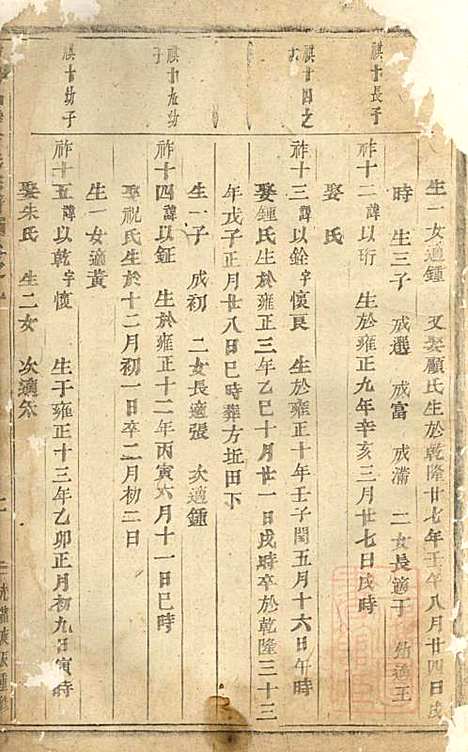 生一女適鍾 又娶顧氏生於乾隆廿七年壬午八月廿四日戌
時 生三子 成選 成富 成滿 二女長適于 幼適王
祺十長子
祚十二諱以珩 生於雍正九年辛亥三月廿七日戌時
娶 氏
祺十四之
祚十三諱以銓字懷良 生於雍正十年壬子閏五月十六日午時
娶鍾氏生於雍正三年乙巳十月廿一日戌時卒於乾隆三十三
年戊子正月廿八日巳時葬方坵田下
生一子 成初 二女長適張 次適鍾
祺十九幼
子
祚十四諱以鉦 生於雍正十二年丙寅六月十一日巳時
娶祝氏生於十二月初一日卒二月初二日
生一女適黃
祺十幼子
祚十五諱以乾字懷 生于雍正十三年乙卯正月初九日寅時
娶朱氏 生二女 次適余